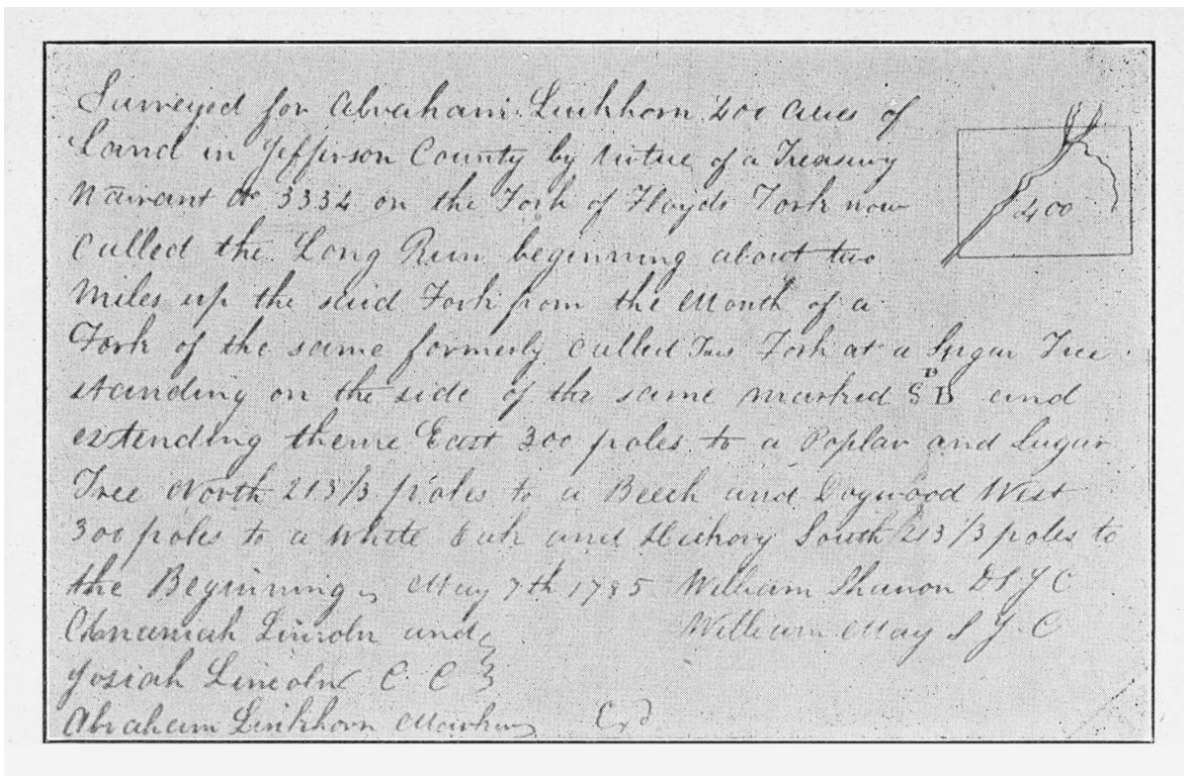 Surveyed for Abraham Linkhorn 400 acres of
Land in Jefferson County by virtue of a Treasury
Warrant No 3334 on the Fork of Floyds Fork now
Called the Long Run beginning about two
Miles up the said Fork from the Mouth of a
Fork of the same formerly Called Fork at a Sugar Tree
standing on the side of the same marked S D B and
extending thence East 300 poles to a Poplar and Sugar
Tree North 213 1/3 poles to a Beech and Dogwood West
300 poles to a White Oak and Hickory South 213 1/3 poles to
the Beginning May 7th 1785 William Shanon D S J C
Annaniah Lincoln and William May S J C
Josiah Lincoln C C
Abraham Linkhorn Marker
400